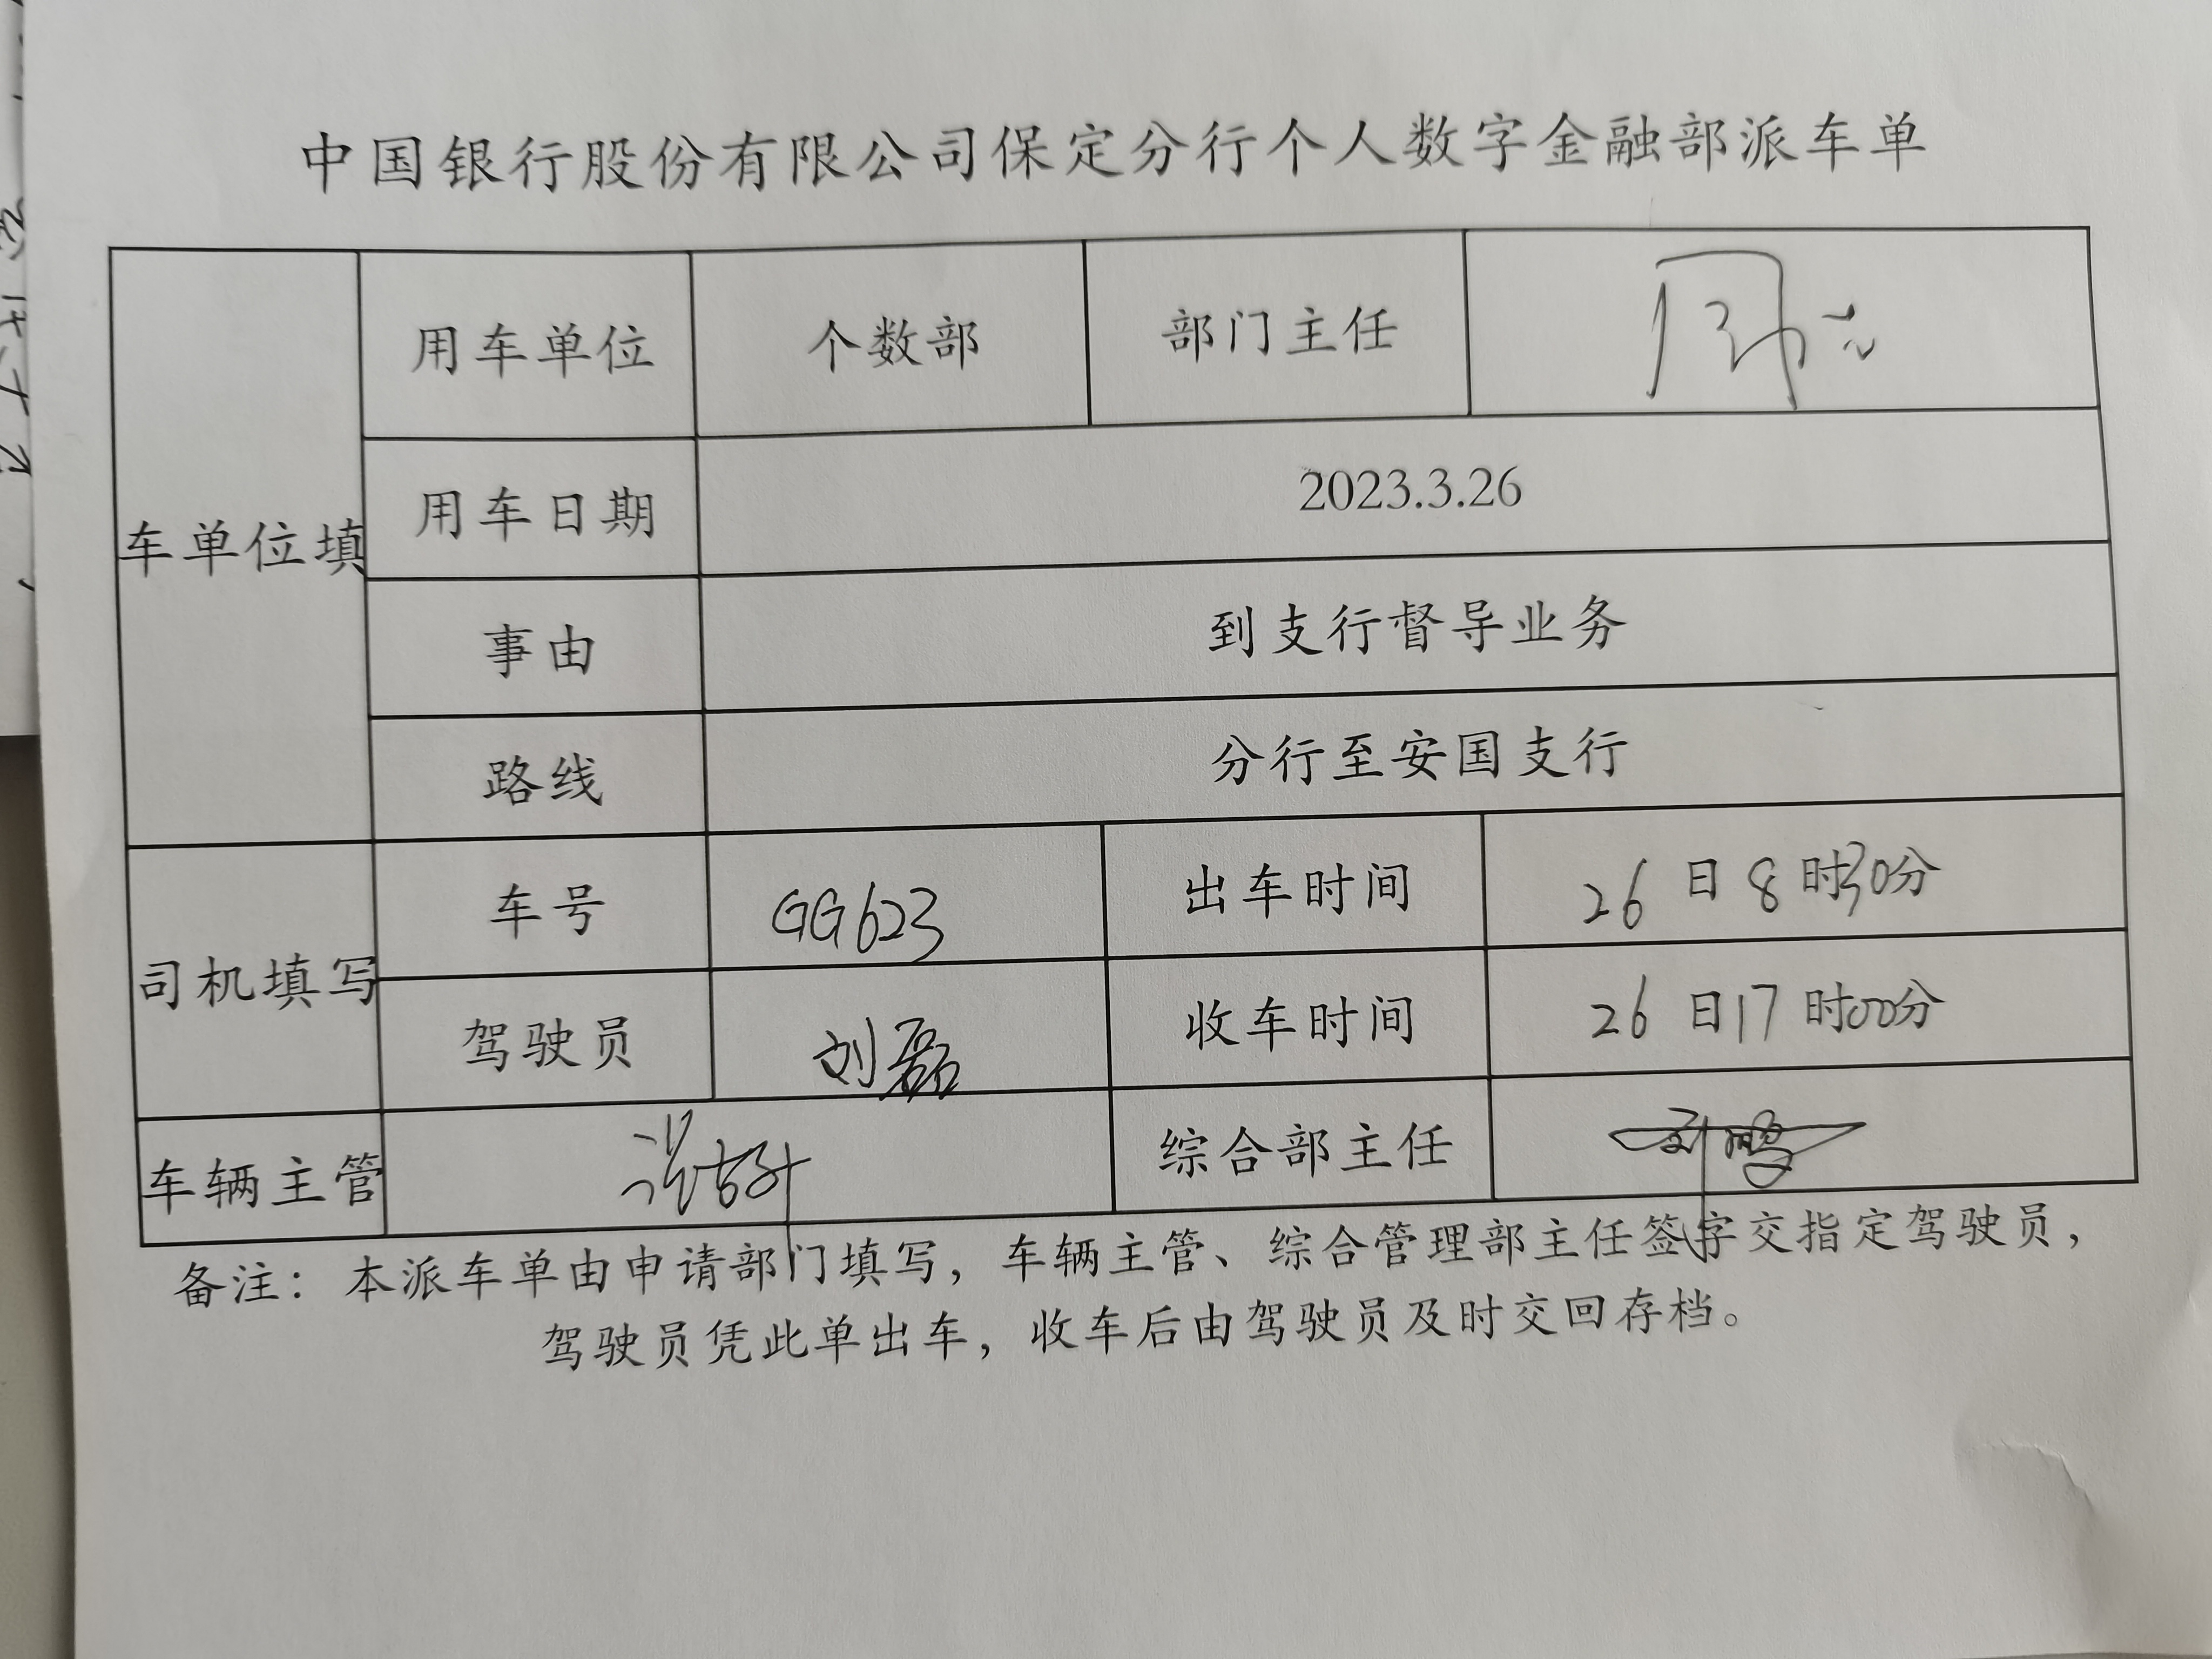 中国银行股份有限公司保定分行个人数字金融部派车单
用车单位 个数部 部门主任
车单位填 用车日期 2023.3.26
事由 到支行督导业务
路线 分行至安国支行
司机填写 车号 GG623 出车时间 26日8时30分
驾驶员 刘磊 收车时间 26日17时00分
车辆主管 综合部主任 刘鹏
备注：本派车单由申请部门填写，车辆主管、综合管理部主任签字交指定驾驶员，
驾驶员凭此单出车，收车后由驾驶员及时交回存档。